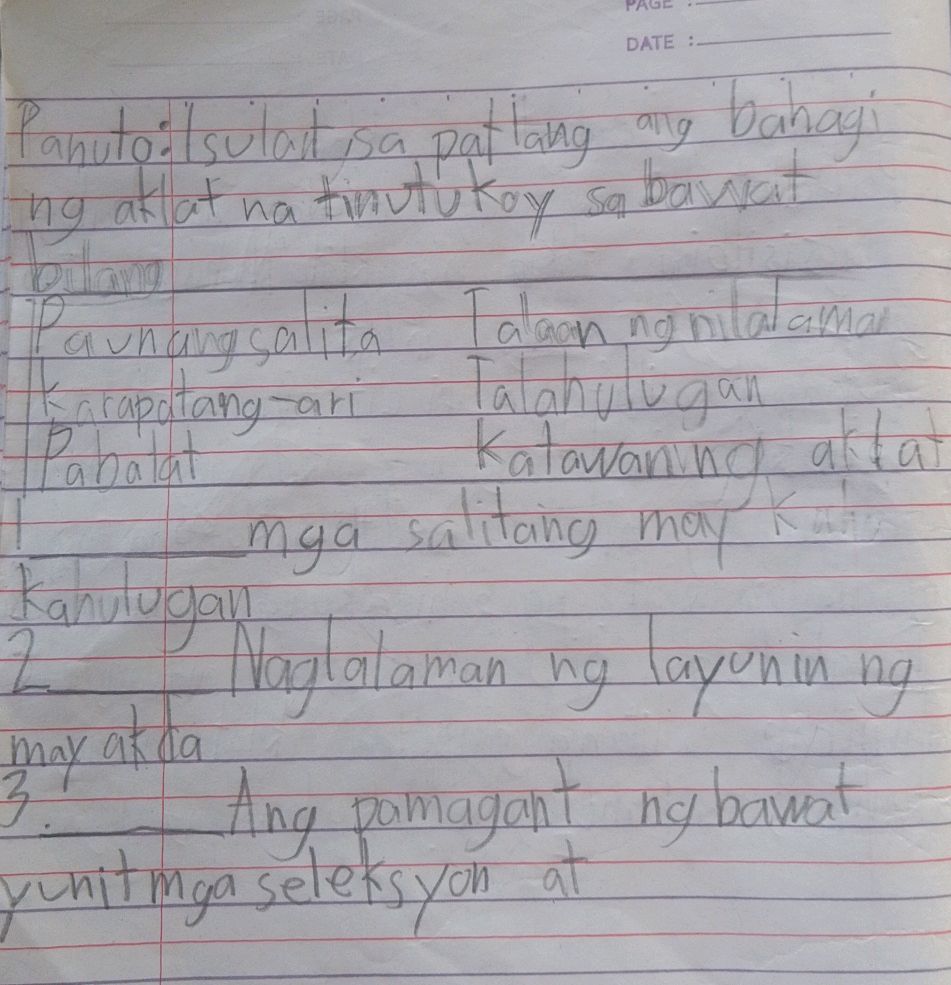 PAGE :
DATE :
Panuto: Isulat sa patlang ang bahagi
ng aklat na tinutukoy sa bawat
bilang
Paunang salita Talaan ng nilalaman
Karapatang-ari Talahulugan
Pabalat Katawan ng aklat
1 mga salitang may
Kahulugan
2 Naglalaman ng layunin ng
may akda
3. Ang pamagant ng bawat
yunit mga seleksyon at